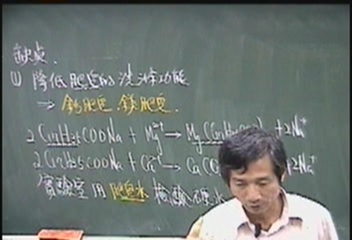 缺處.
(1) 降低肥皂的洗滌功能
→ 鈣肥皂. 鎂肥皂.
2 C₁₇H₃₅COONa + Mg²⁺ → Mg(C₁₇H +2Na⁺
2 C₁₇H₃₅COONa + Ca²⁺ → Ca(C Na⁺
實驗室用肥皂水檢驗硬水